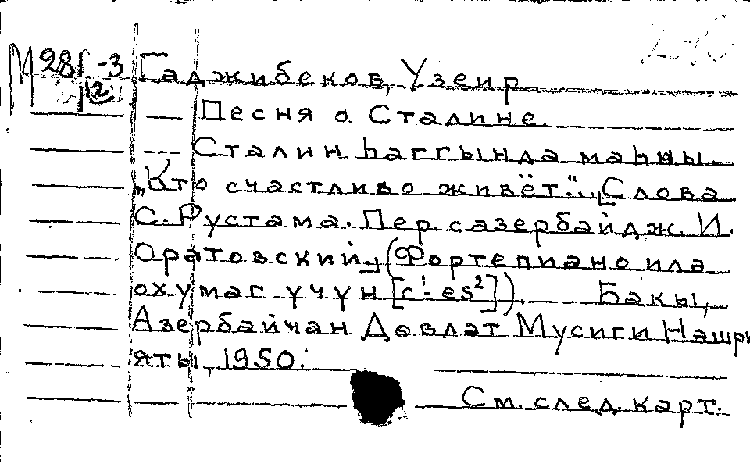 М 28 1-3 Гаджибеков, Узеир
12 Песня о Сталине.
Сталин һаггында маһны.
"Кто счастливо живёт." Слова
С. Рустама. Пер с азербайдж. И.
Оратовский. (Фортепиано ила
охумаг учун [c¹-es²]). Бакы,
Азербайчан Довлат Мусиги Нашри
яты, 1950.
См. след. карт.